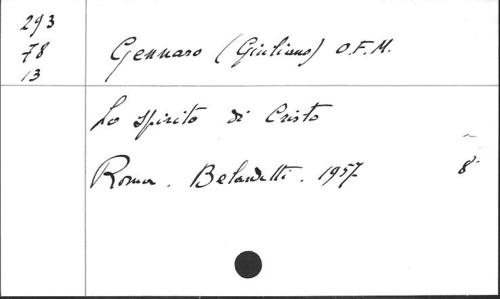 293
78
13
Gennaro (Giuliano) O.F.M.
Lo spirito di Cristo
Roma. Belardetti. 1957 8°